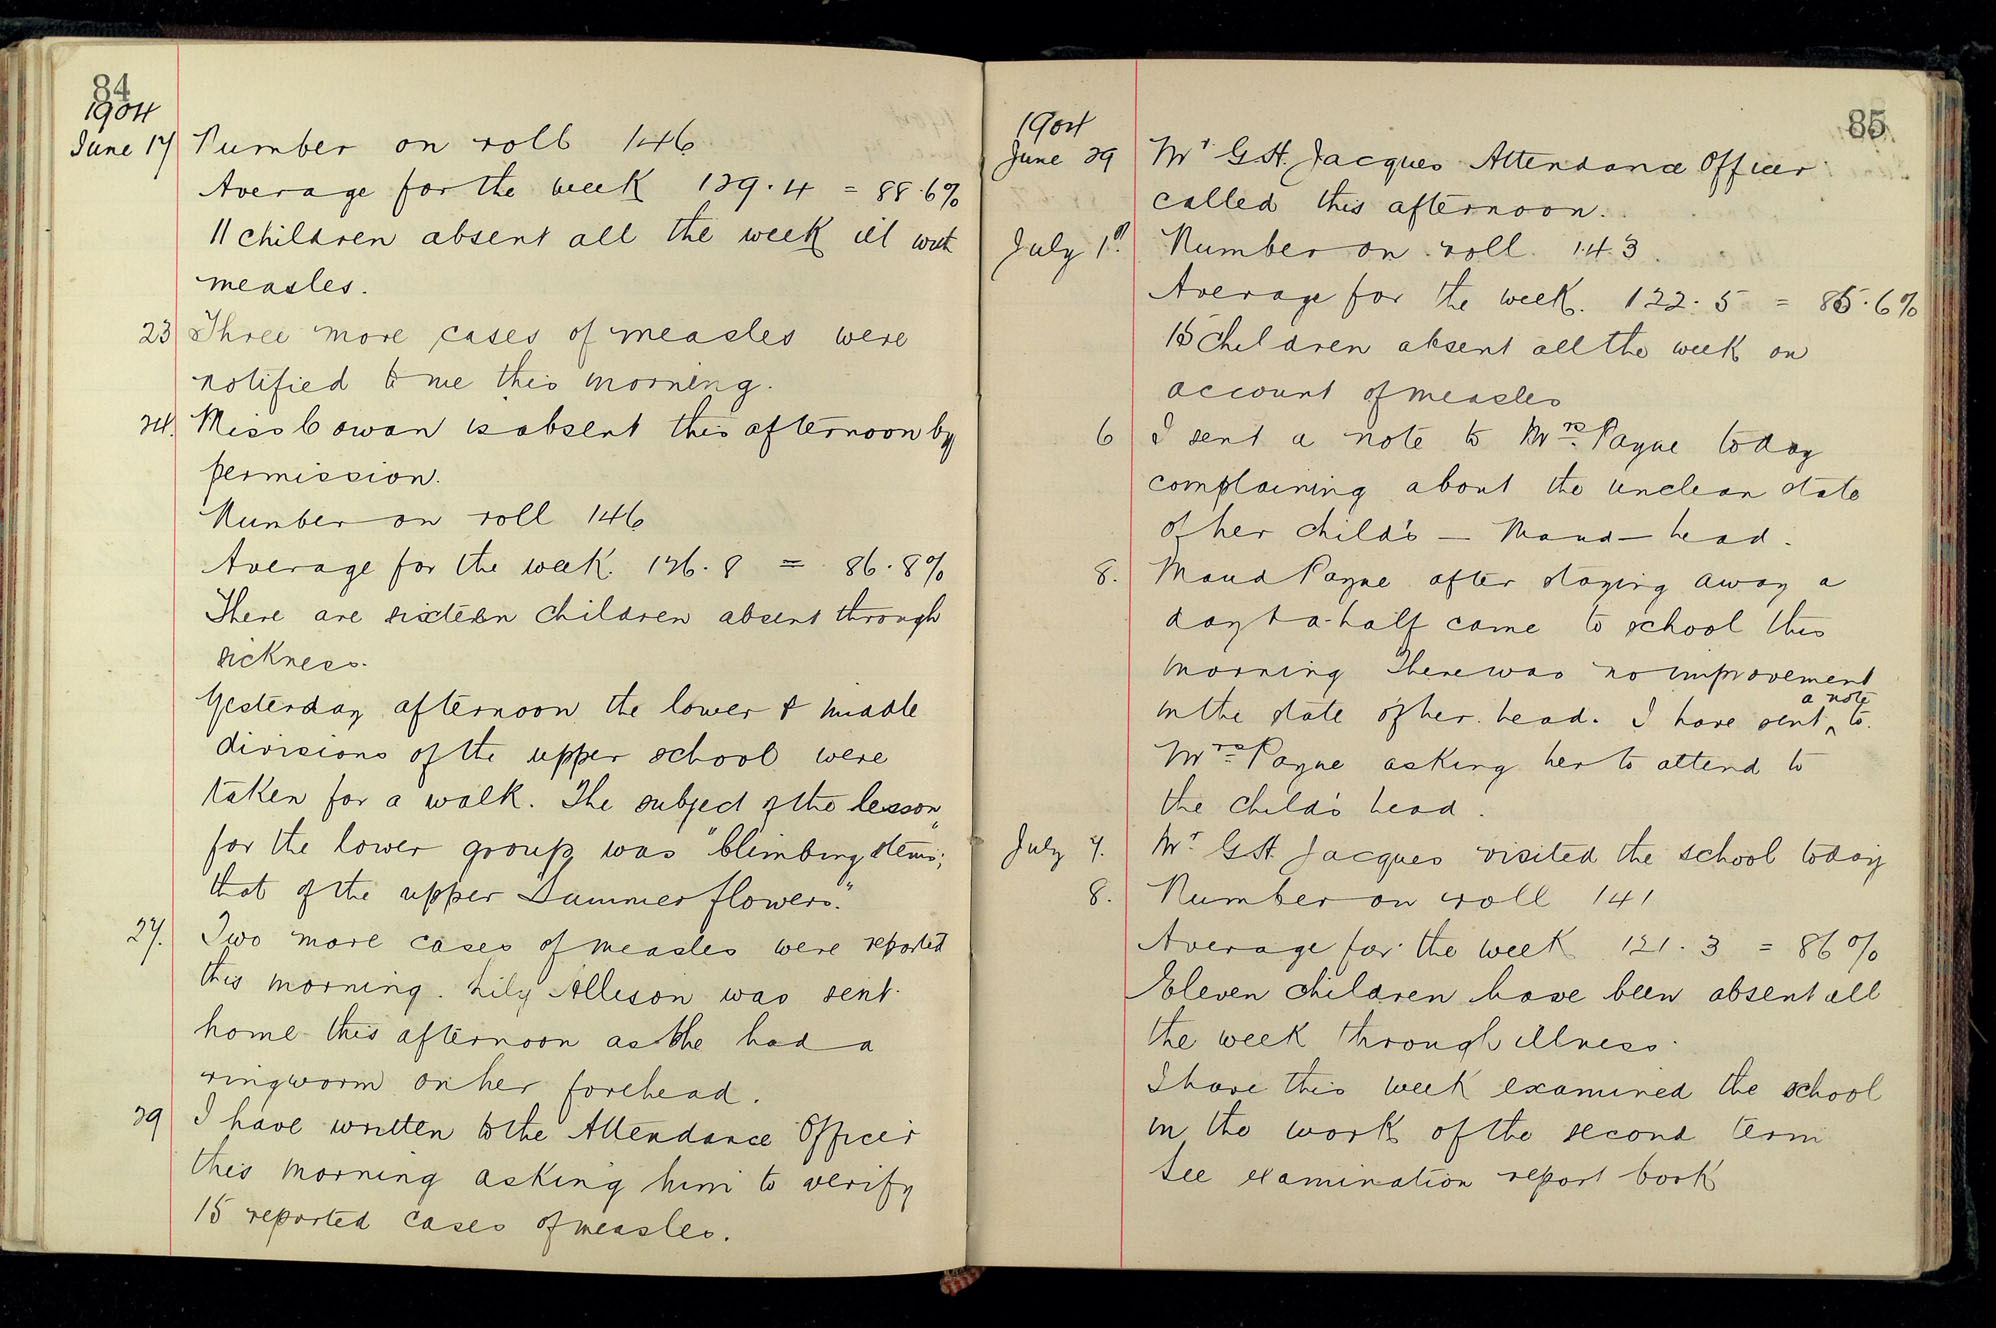 84
1904
June 17 Number on roll 146
Average for the week 129.4 = 88.6%
11 children absent all the week ill with
measles.
23 Three more cases of measles were
notified to me this morning.
24. Miss Cowan is absent this afternoon by
permission.
Number on roll 146
Average for the week. 126.8 = 86.8%
There are sixteen children absent through
sickness.
Yesterday afternoon the lower & middle
divisions of the upper school were
taken for a walk. The subject of the lesson
for the lower group was "Climbing stems";
that of the upper "Summer flowers."
27. Two more cases of measles were reported
this morning. Lily Allison was sent
home this afternoon as she had a
ringworm on her forehead.
29 I have written to the Attendance Officer
this morning asking him to verify
15 reported cases of measles.
85
1904
June 29 Mr G.H. Jacques Attendance Officer
called this afternoon.
July 1st. Number on roll 143.
Average for the week. 122.5 = 85.6%
15 children absent all the week on
account of measles
6 I sent a note to Mrs. Payne today
complaining about the unclean state
of her child's — Maud — head.
8. Maud Payne after staying away a
day & a-half came to school this
morning There was no improvement
in the state of her head. I have sent a note to
Mrs. Payne asking her to attend to
the child's head.
July 7. Mr. G.H. Jacques visited the school today
8. Number on roll 141
Average for the week 121.3 = 86%
Eleven children have been absent all
the week through illness.
I have this week examined the school
in the work of the second term
See examination report book